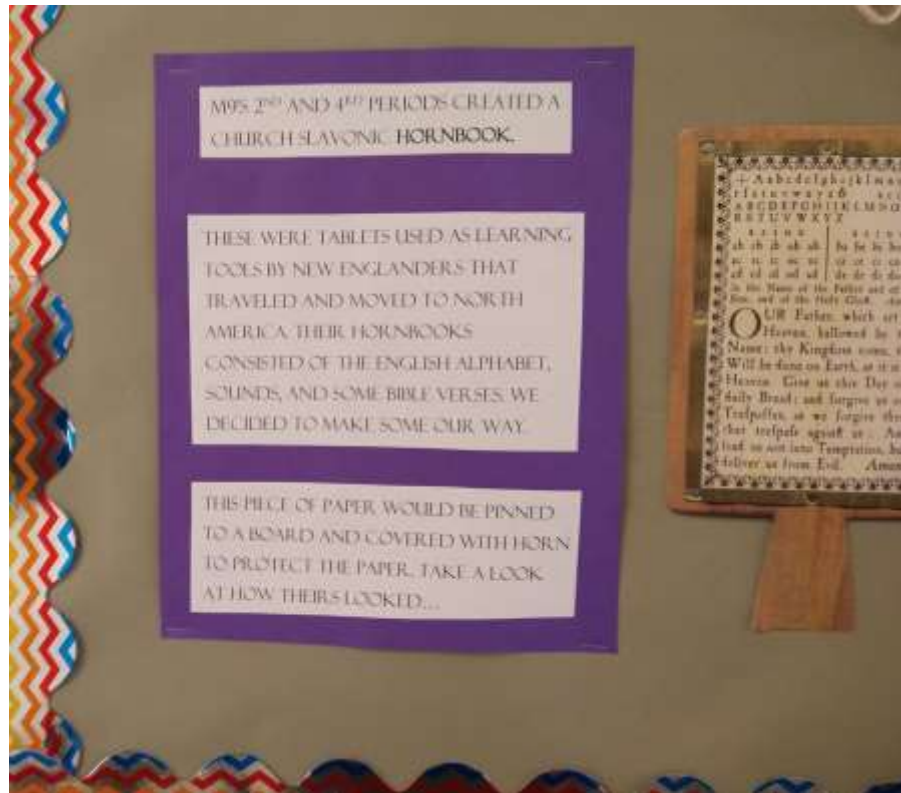 M95 2ND AND 4RTH PERIODS CREATED A
CHURCH SLAVONIC HORNBOOK.
THESE WERE TABLETS USED AS LEARNING
TOOLS BY NEW ENGLANDERS THAT
TRAVELED AND MOVED TO NORTH
AMERICA. THEIR HORNBOOKS
CONSISTED OF THE ENGLISH ALPHABET,
SOUNDS, AND SOME BIBLE VERSES. WE
DECIDED TO MAKE SOME OUR WAY.
THIS PIECE OF PAPER WOULD BE PINNED
TO A BOARD AND COVERED WITH HORN
TO PROTECT THE PAPER. TAKE A LOOK
AT HOW THEIRS LOOKED...
in the Name of the Father and of
Son, and of the Holy Ghost.
OUR Father, which art
Heaven, hallowed be
Name; thy Kingdom come,
Will be done on Earth, as it is
Heaven. Give us this Day
daily Bread; and forgive us
Treſpaſſes, as we forgive
that treſpaſs againſt us: And
lead us not into Temptation, but
deliver us from Evil. Amen